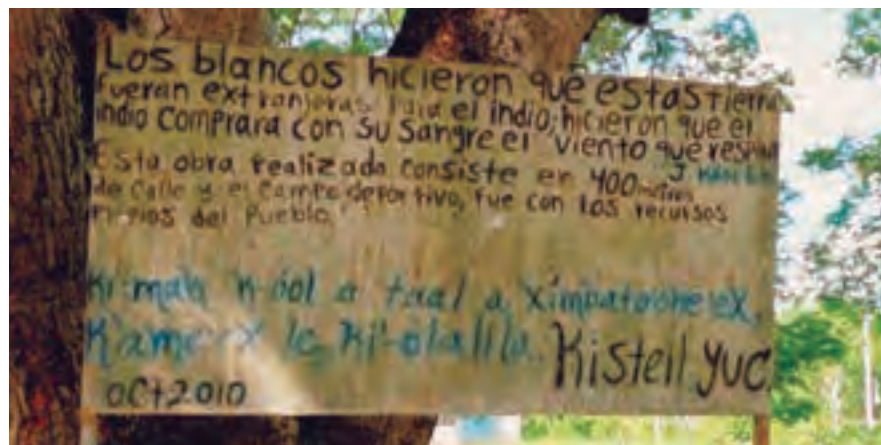 Los blancos hicieron que estas tierra
fueran extranjeras para el indio; hicieron que el
indio comprara con su sangre el viento que respira
J.
Esta obra realizada consiste en 400 metros
de calle y el campo deportivo, fue con los recursos
propios del Pueblo.
Ki'mak k-óol a taal a
K'ame'ex le ki'
oct 2010
Kisteil Yuc.